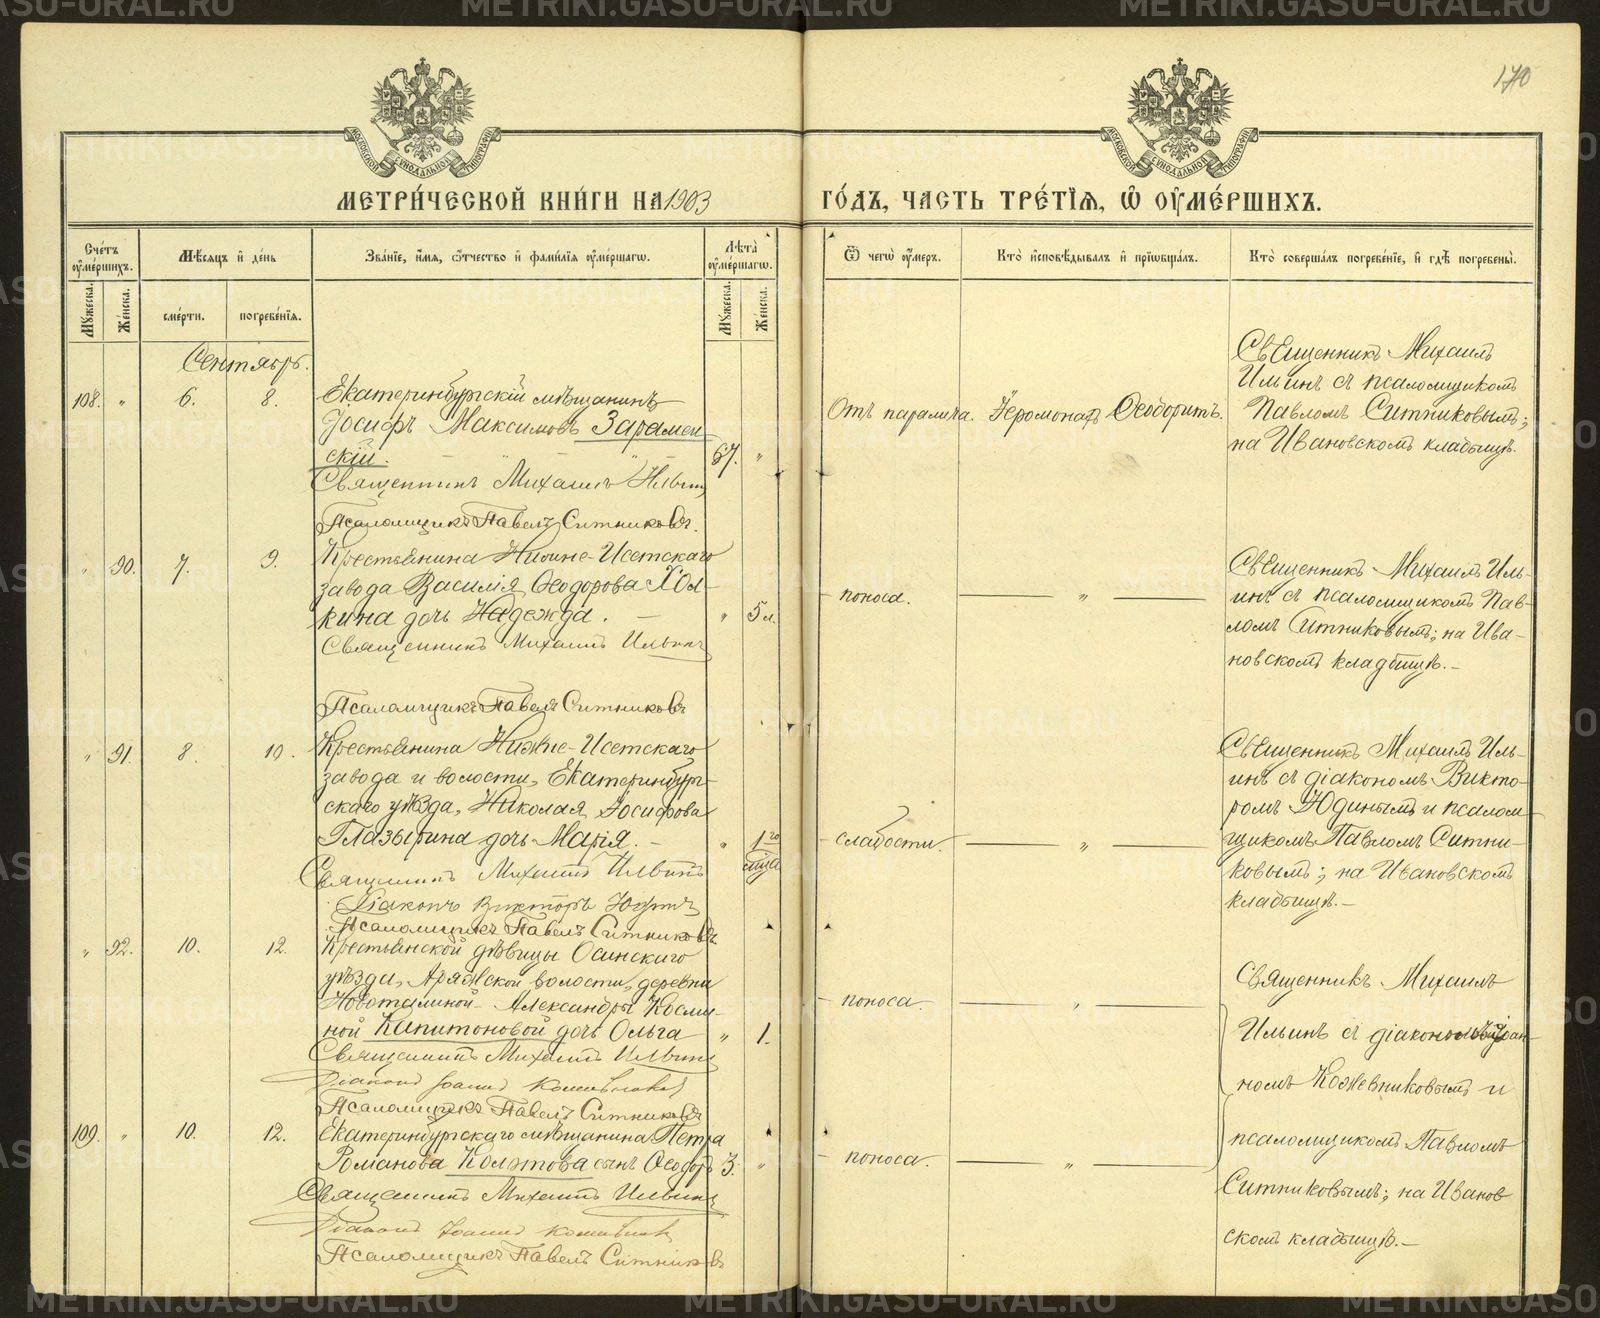 170
МОСКОВСКОЙ СѴНОДАЛЬНОЙ ТИПОГРАФІИ
МОСКОВСКОЙ СѴНОДАЛЬНОЙ ТИПОГРАФІИ
МЕТРИ́ЧЕСКОЙ КНИ́ГИ НА 1903 ГО́ДЪ, ЧАСТЬ ТРЕ́ТІѦ, Ѡ ОУМЕ́РШИХЪ.
Сче́тъ оуме́ршихъ.
Мѣ́сѧцъ и҆ де́нь
Зва́нїе, и҆́мѧ, ѻ҆́тчество и҆ фами́лїѧ оуме́ршагѡ.
Лѣ́та оуме́ршагѡ.
Ѿ чегѡ̀ оу́меръ.
Кто̀ и҆сповѣ́дывалъ и҆ прїѡбща́лъ.
Кто̀ соверша́лъ погребе́нїе, и҆ гдѣ̀ погребены̀.
Мꙋ́жеска. Же́нска. сме́рти. погребе́нїѧ. Мꙋ́жеска. Же́нска.
Сентябрь.
108. " 6. 8. Екатеринбургскій мѣщанинъ
Іосифъ Максимовъ Зарамен-
скій. 67. "
Священникъ Михаилъ Ильинъ
Псаломщикъ Павелъ Ситниковъ.
Отъ паралича. Іеромонахъ Ѳеодоритъ.
Священникъ Михаилъ
Ильинъ съ псаломщикомъ
Павломъ Ситниковымъ;
на Ивановскомъ кладбищѣ.
" 90. 7. 9. Крестьянина Нижне-Исетскаго
завода Василія Ѳеодорова Хол-
кина дочь Надежда. " 5 л.
Священникъ Михаилъ Ильинъ
Псаломщикъ Павелъ Ситниковъ
поноса. "
Священникъ Михаилъ Иль-
инъ съ псаломщикомъ Пав-
ломъ Ситниковымъ; на Ива-
новскомъ кладбищѣ.
" 91. 8. 10. Крестьянина Нижне-Исетскаго
завода и волости, Екатеринбург-
скаго уѣзда, Николая Іосифова
Глазырина дочь Марія. " 1го
мца
Священникъ Михаилъ Ильинъ
Діаконъ Викторъ Юдинъ
Псаломщикъ Павелъ Ситниковъ
слабости. "
Священникъ Михаилъ Иль-
инъ съ діакономъ Викто-
ромъ Юдинымъ и псалом-
щикомъ Павломъ Ситни-
ковымъ; на Ивановскомъ
кладбищѣ.
" 92. 10. 12. Крестьянской дѣвицы Осинскаго
уѣзда, Аряжской волости, деревни
Александры Косми-
ной Капитоновой дочь Ольга " 1.
Священникъ Михаилъ Ильинъ
Діаконъ Іоаннъ Кожевниковъ
Псаломщикъ Павелъ Ситниковъ
поноса. "
Священникъ Михаилъ
Ильинъ съ діакономъ Іоан-
номъ Кожевниковымъ и
псаломщикомъ Павломъ
Ситниковымъ; на Иванов
скомъ кладбищѣ.
109. " 10. 12. Екатеринбургскаго мѣщанина Петра
Романова сынъ Ѳеодоръ 3. "
Священникъ Михаилъ Ильинъ
Діаконъ Іоаннъ Кожевниковъ
Псаломщикъ Павелъ Ситниковъ
поноса. "
METRIKI.GASU-URAL.RU